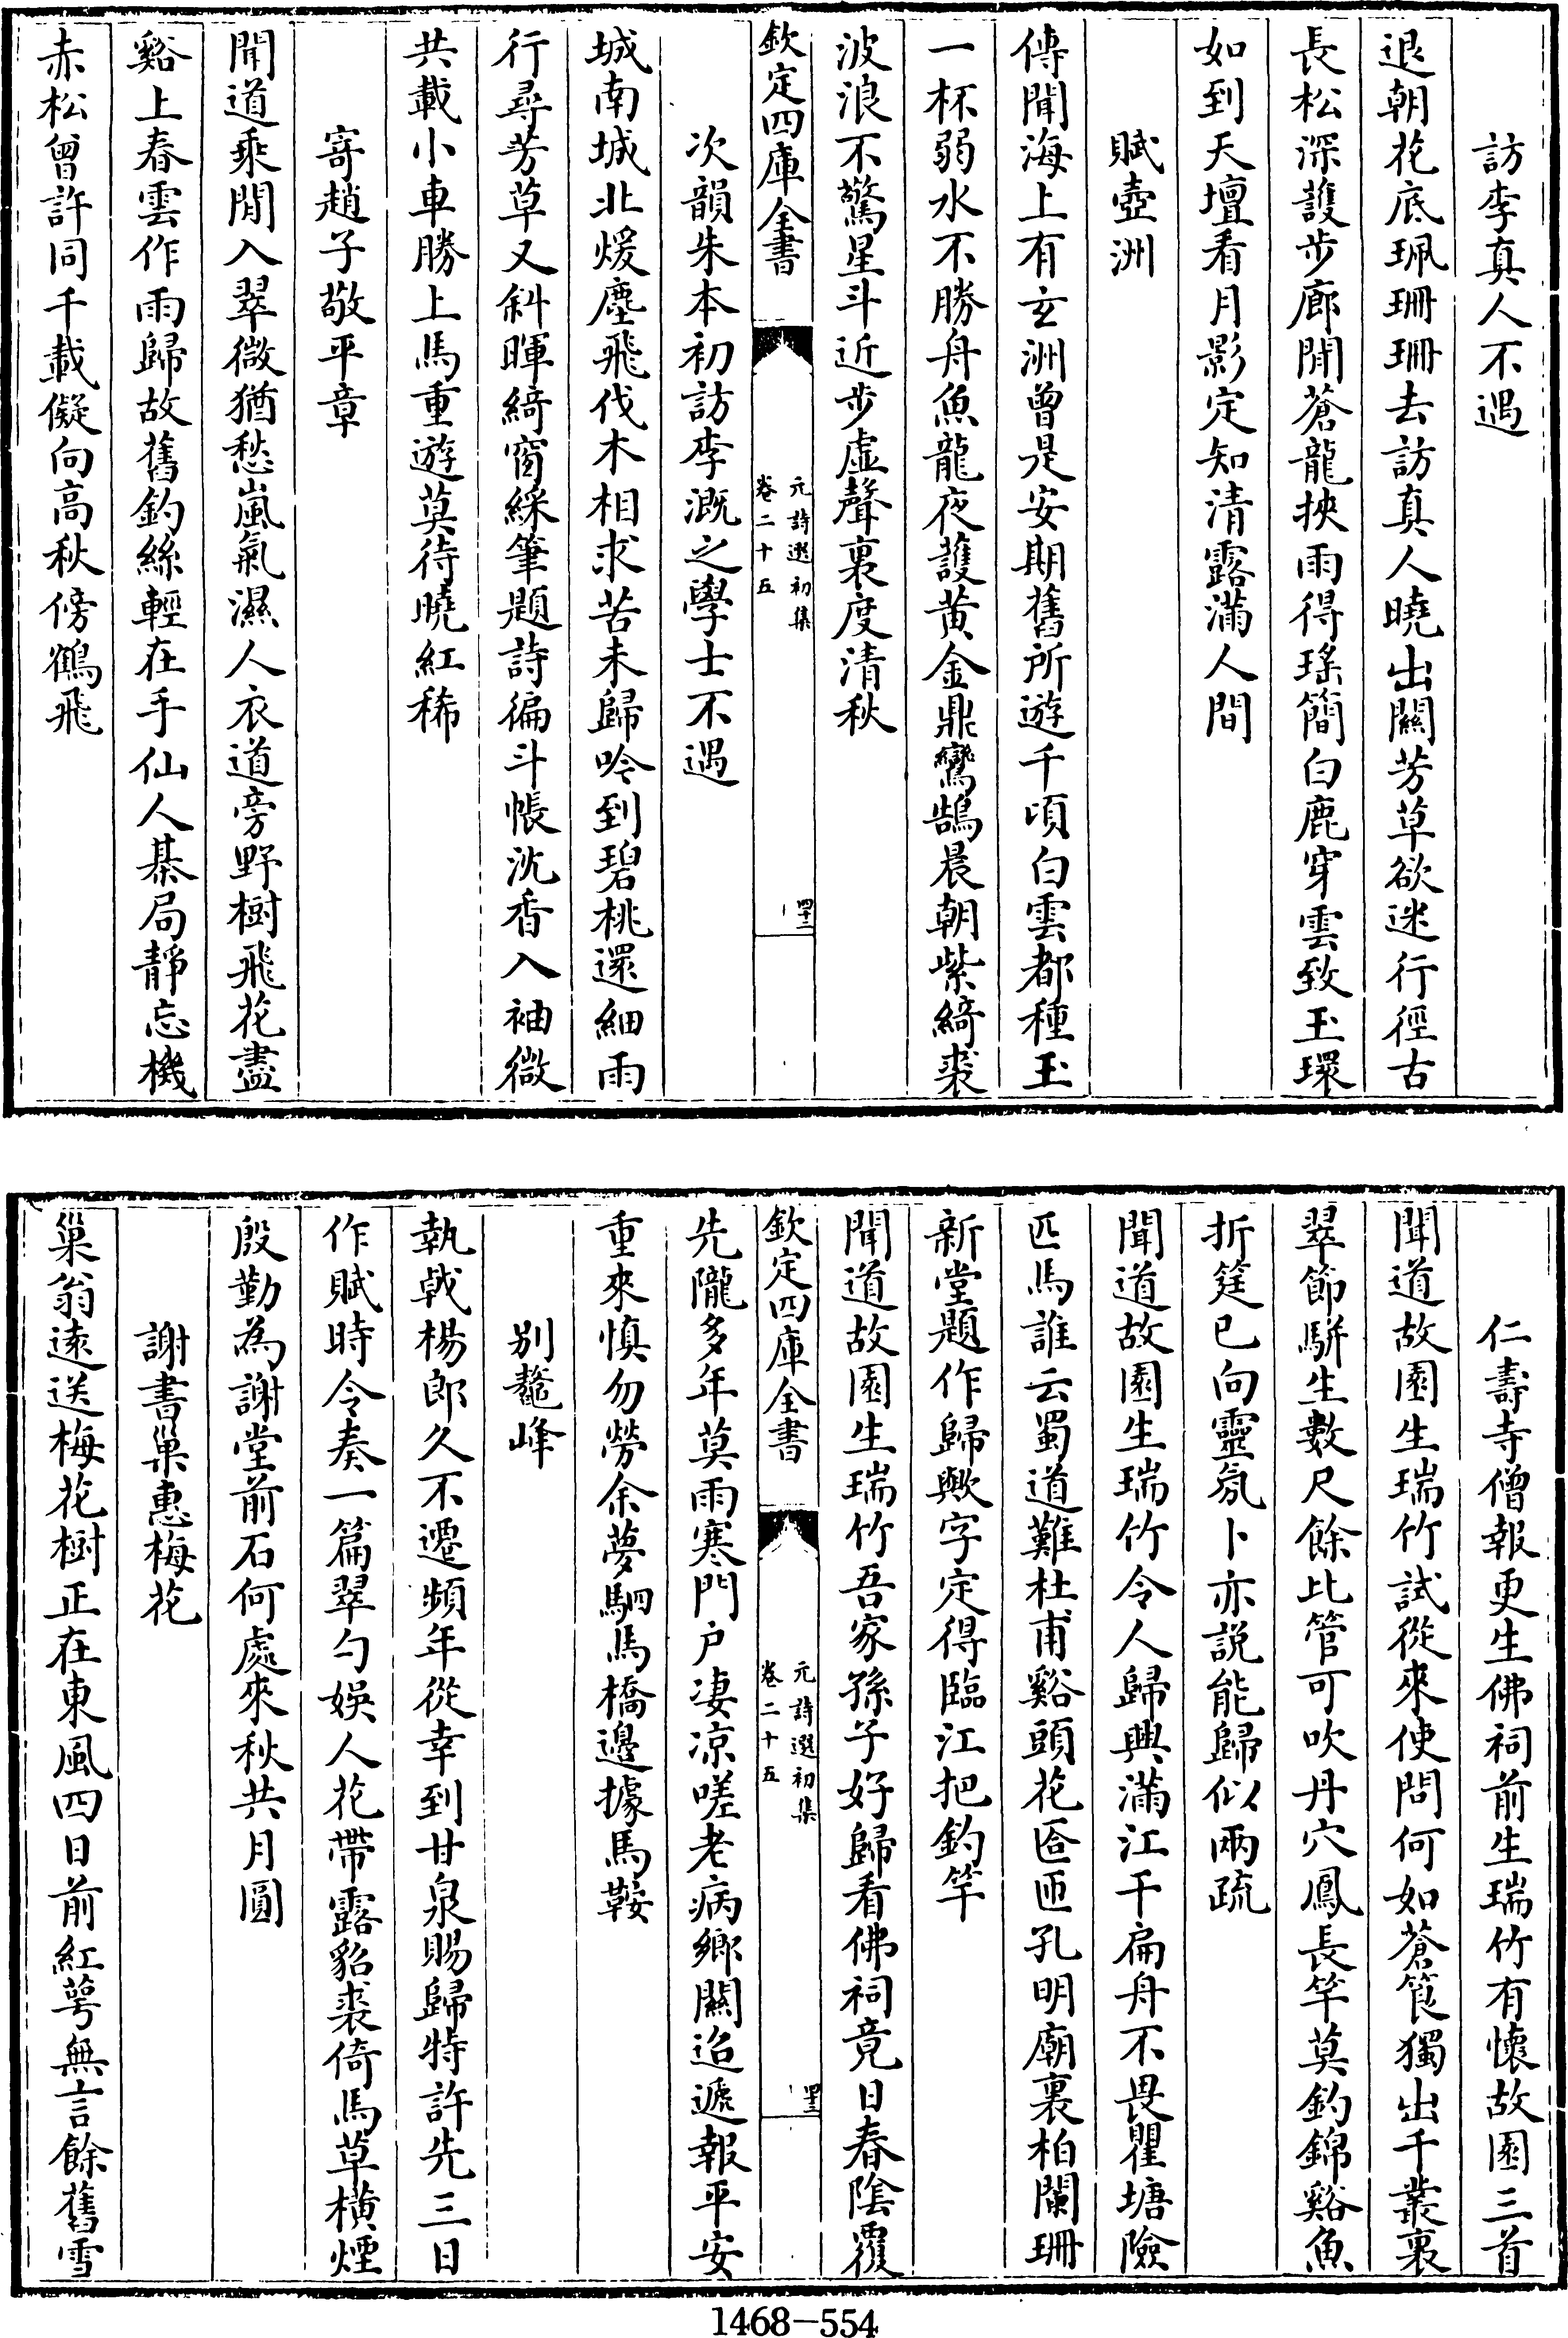 訪李真人不遇
退朝花底珮珊珊去訪真人曉出關芳草欲迷行徑古
長松深護步廊閒蒼龍挾雨得瑤簡白鹿穿雲致玉環
如到天壇看月影定知清露滿人間
賦壺洲
傳聞海上有玄洲曾是安期舊所遊千頃白雲都種玉
一杯弱水不勝舟魚龍夜護黄金鼎鸞鵠晨朝紫綺裘
波浪不驚星斗近步虛聲裏度清秋
欽定四庫全書
元詩選初集
卷二十五
四十二
次韻朱本初訪李溉之學士不遇
城南城北煖塵飛伐木相求苦未歸吟到碧桃還細雨
行尋芳草又斜暉綺窗綵筆題詩徧斗帳沈香入袖微
共載小車勝上馬重遊莫待曉紅稀
寄趙子敬平章
聞道乘閒入翠微猶愁嵐氣濕人衣道旁野樹飛花盡
谿上春雲作雨歸故舊釣絲輕在手仙人棊局靜忘機
赤松曾許同千載儗向高秋傍鶴飛
仁壽寺僧報更生佛祠前生瑞竹有懷故園三首
聞道故園生瑞竹試從來使問何如蒼筤獨出千叢裏
翠節駢生數尺餘比管可吹丹穴鳳長竿莫釣錦谿魚
折筳已向靈氛卜亦説能歸似兩疏
聞道故園生瑞竹令人歸興滿江干扁舟不畏瞿塘險
匹馬誰云蜀道難杜甫谿頭花匼匝孔明廟裏柏闌珊
新堂題作歸歟字定得臨江把釣竿
聞道故園生瑞竹吾家孫子好歸看佛祠竟日春陰覆
欽定四庫全書
元詩選初集
卷二十五
四十三
先隴多年莫雨寒門户凄凉嗟老病鄉關迢遞報平安
重來慎勿勞余夢駟馬橋邊據馬鞍
别鼇峰
執戟楊郎久不遷頻年從幸到甘泉賜歸特許先三日
作賦時令奏一篇翠勺娛人花帶露貂裘倚馬草横煙
殷勤為謝堂前石何處來秋共月圓
謝書巢惠梅花
巢翁遠送梅花樹正在東風四日前紅萼無言餘舊雪
1468-554